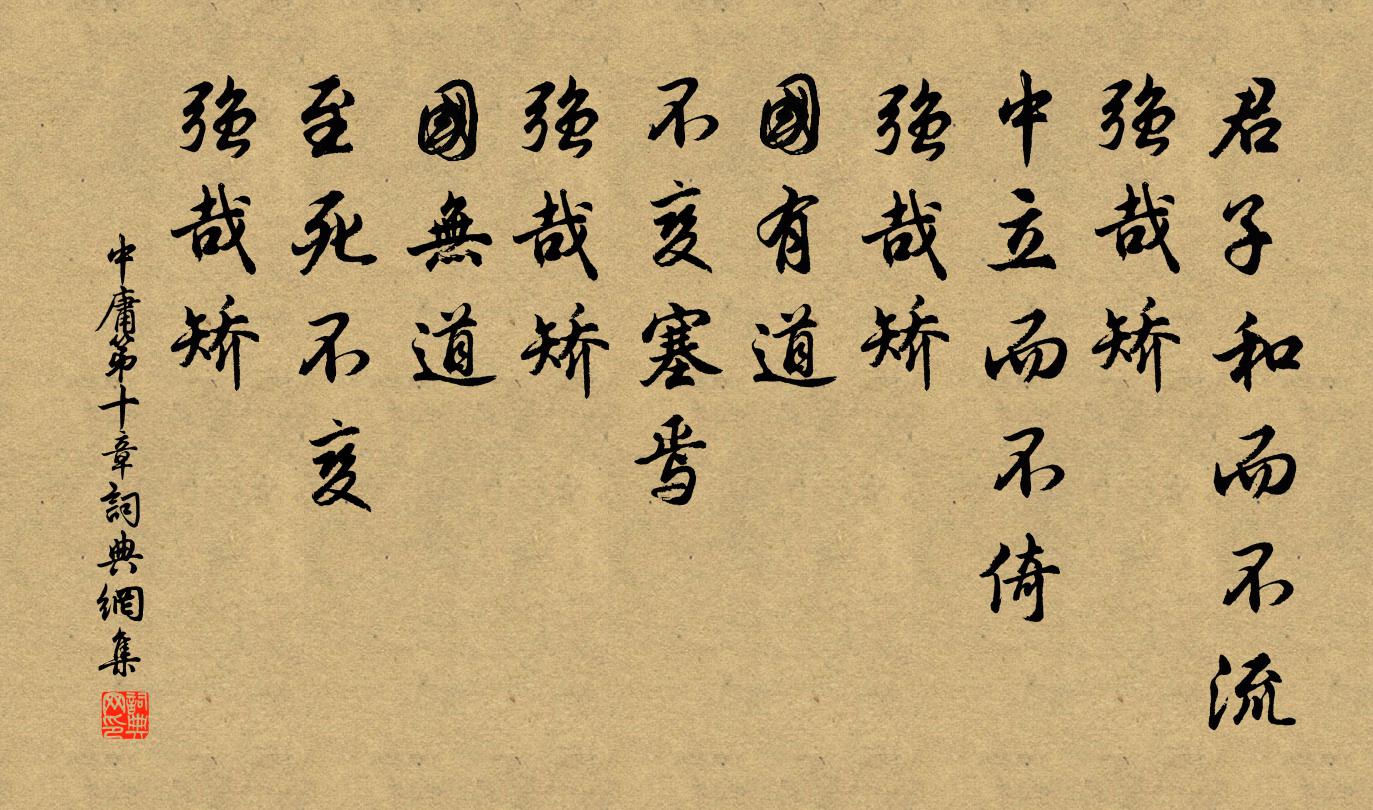 君子和而不流
強哉矯
中立而不倚
強哉矯
國有道
不变塞焉
強哉矯
國無道
至死不变
強哉矯
中庸第十章詞典網集
詞典网印